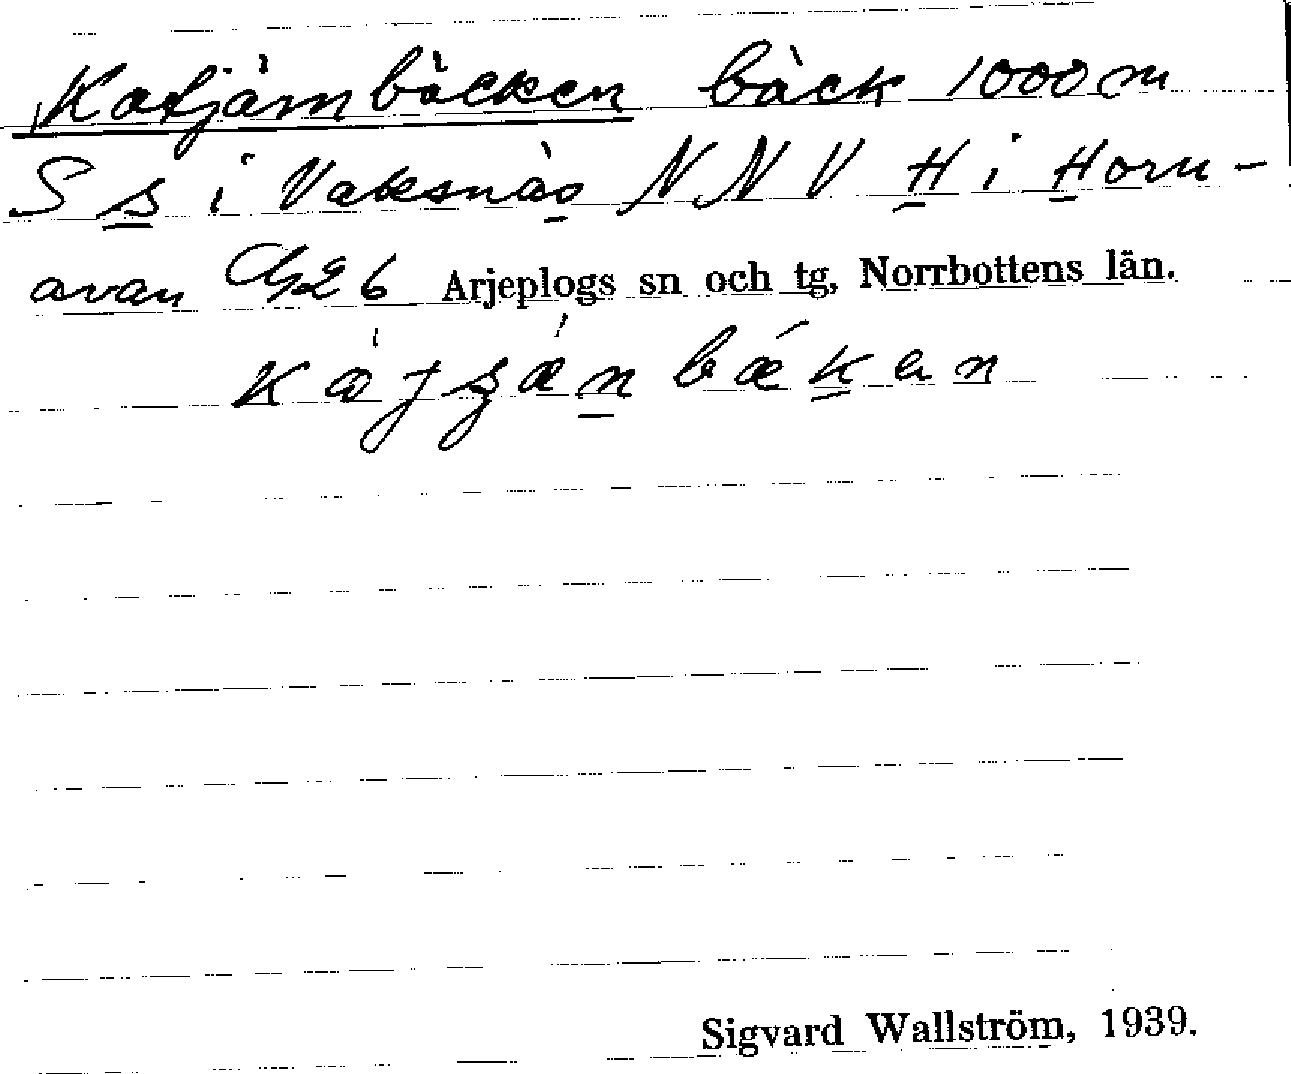 Katjärnbäcken bäck 1000 m
S s i Vaksnäs NNV H i Horn-
avan Arjeplogs sn och tg, Norrbottens län.
Sigvard Wallström, 1939.